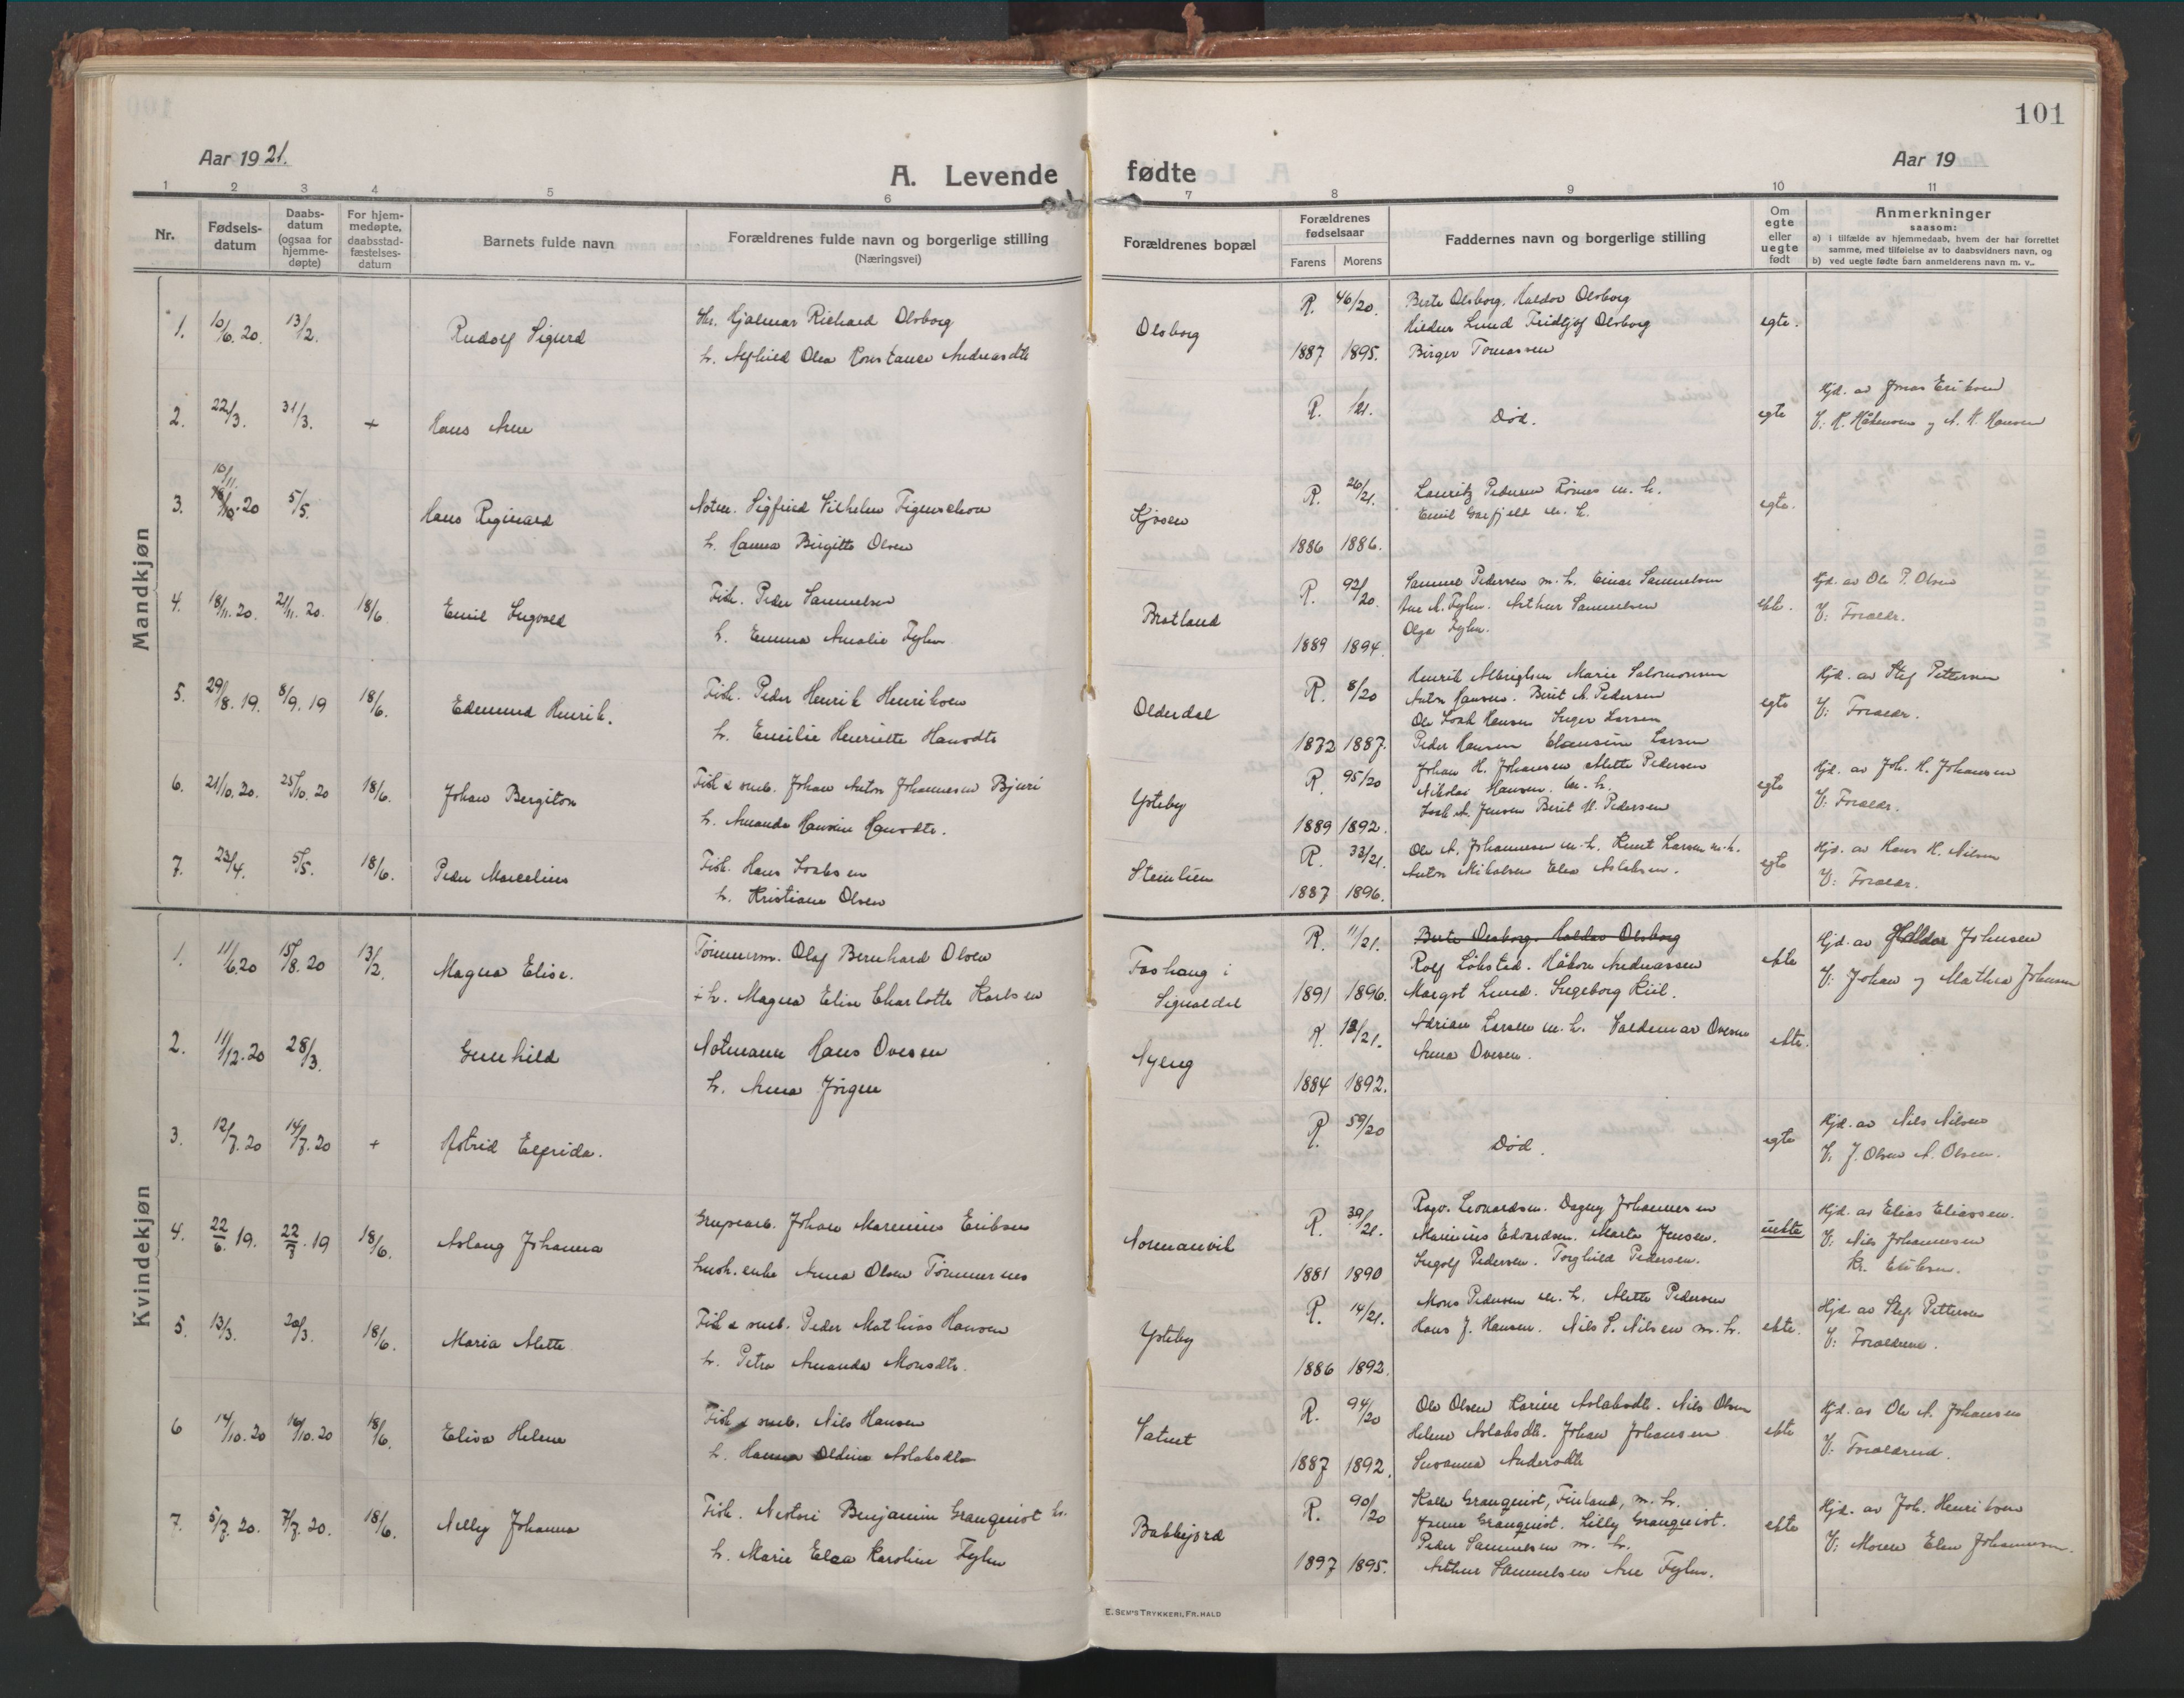 101
Aar 1921.
A. Levende fødte
Aar 19
1 2 3 4 5 6 7 8 9 10 11
Nr.
Fødsels-
datum
Daabs-
datum
(ogsaa for
hjemme-
døpte)
For hjem-
medøpte,
daabsstad-
fæstelses-
datum
Barnets fulde navn
Forældrenes fulde navn og borgerlige stilling
(Næringsvei)
Forældrenes bopæl
Forældrenes
fødselsaar
Farens Morens
Faddernes navn og borgerlige stilling
Om
egte
eller
uegte
født
Anmerkninger
saasom:
a) i tilfælde av hjemmedaab, hvem der har forrettet
samme, med tilføielse av to daabsvidners navn, og
b) ved uegte fødte barn anmelderens navn m. v.
Mandkjøn
1. 10/6. 20. 13/2. Rudolf Sigurd
Hjalmar Richard Olsborg
h. Alfhild Olea Konstance Andreasdtr
Olsborg
R. 46/20.
1887 1895.
Berte Olsborg. Haldor Olsborg
Hildur Lund Fridtjof Olsborg
Birger Tomassen
egte.
2. 22/3. 31/3. + Hans Arne
R. /21.
Død.
egte
Hjd. av Jonas Eriksen
V: H. Håkensen og A. H. Hansen
3. 10/11. 20 5/5. Hans Reginard
Notm. Sigfried Vilhelm Figenschou
h. Hanna Birgitte Olsen
Kjosen
R. 26/21.
1886 1886.
Lauritz Pedersen m. h.
Emil m. h.
egte.
4. 18/11. 20. 21/11. 20. 18/6. Emil Ingvald
Fisk. Peder Samuelsen
h. Emma Amalie Fyhn
Bratland
R. 92/20.
1889 1894.
Samuel Pedersen m. h. Einar Samuelsen
Ane A. Fyhn. Arthur Samuelsen
Olga Fyhn.
ekte.
Hjd. av Ole P. Olsen
V: Foraldr.
5. 29/8. 19. 8/9. 19 18/6. Edmund Henrik.
Fisk. Peder Henrik Henriksen
h. Emilie Henriette Hansdtr
Olderdal
R. 8/20
1872 1887.
Henrik Albrigtsen Marie Salomonsen
Anton Hansen. Berit A. Pedersen
Ole Isak Hansen Inger Larsen
Peder Hansen Clausine Larsen
egte
Hjd. av Stef Pettersen
V: Foraldr.
6. 21/10. 20. 25/10. 20 18/6. Johan Bergiton
Fisk & smb. Johan Anton Johannesen Bjuri
h. Amanda Hansine Hansdtr.
Ysteby
R. 95/20
1889 1892.
Johan H. Johansen Alette Pedersen
Nikolai Hansen. m. h.
Isak A. Jensen Berit H. Pedersen
egte
Hjd. av Joh. H. Johansen
V: Foraldr.
7. 23/4. 5/5. 18/6. Peder Marcelius
Fisk. Hans Isaksen
h. Kristiane Olsen
Steinlien
R. 33/21.
1887 1896.
Ole A. Johannesen m. h. Knut Larsen m. h.
Anton Mikalsen Elea Aslaksen.
egte
Hjd. av Hans H. Nilsen
V: Foraldr.
Kvindekjøn
1. 11/6. 20 15/8. 20 13/2. Magna Elise.
Tømmerm. Olaf Bernhard Olsen
+h. Magna Elise Charlotte Karlsen
Foshaug i
Signaldal
R. 11/21.
1891 1896.
Berte Olsborg. Haldor Olsborg
Rolf Løksted. Håkon Andreassen
Margot Lund. Ingeborg Kiil.
ekte
Hjd. av Haldor Johnsen
V: Johan og Mathea Johnsen
2. 11/12. 20 28/3. Gunhild
Notmann Hans Ovesen
h. Anna Jørgine
Nyeng
R. 12/21.
1884 1892.
Adrian Larsen m. h. Valdemar Ovesen
Anna Ovesen.
ekte.
3. 12/7. 20 14/7. 20 + Astrid Elfrida.
R. 59/20
Død.
egte
Hjd. av Nils Nilsen
V. J. Olsen A. Olsen.
4. 22/6. 19. 22/7. 19 18/6. Aslaug Johanna
Grupearb. Johan Marenius Eriksen
enke Anna Olsen Tømmernes
Normanvik
R. 39/21.
1881 1890
Ragv. Leonardsen. Dagny Johannesen
Marinius Edvardsen. Marta Jensen.
Ingolf Pedersen. Torghild Pedersen.
uekte
Hjd. av Elias Eliassen.
V: Nils Johannesen
Kr. Eriksen.
5. 13/3. 20/3. 18/6. Maria Alette
Fisk & smb. Peder Mathias Hansen
h. Petra Amanda Monsdtr.
Ysteby
R. 14/21.
1886 1892.
Mons Pedersen m. h. Alette Pedersen
Hans J. Hansen. Nils S. Nilsen m. h.
ekte.
Hjd. av Stef. Pettersen
V: Foraldrene.
6 14/10. 20 16/10. 20 18/6. Elisa Helene
Fisk & smb. Nils Hansen
h. Hanna Oldine Aslaksdtr
Vatnet
R. 94/20
1887 1892.
Ole Olsen Karine Aslaksdtr. Nils Olsen
Helene Aslaksdtr. Johan Johansen
Susanna Andersdtr
ekte
Hjd. av Ole A. Johansen
V: Foraldrend.
7. 5/7. 20. 7/7. 20. 18/6. Nelly Johanna
Fisk. Nestori Benjamin Granquist
h. Marie Elea Karoline Fyhn
Bakkejord
R. 90/20
1897 1895.
Kalle Granquist, Finland, m. h.
Granquist. Lilly Granquist.
Peder Samuelsen m. h.
Arthur Samuelsen Ane Fyhn.
ekte
Hjd. av Joh. Henriksen
V: Moren Elen Johannesen.
E. SEM'S TRYKKERI, FR. HALD